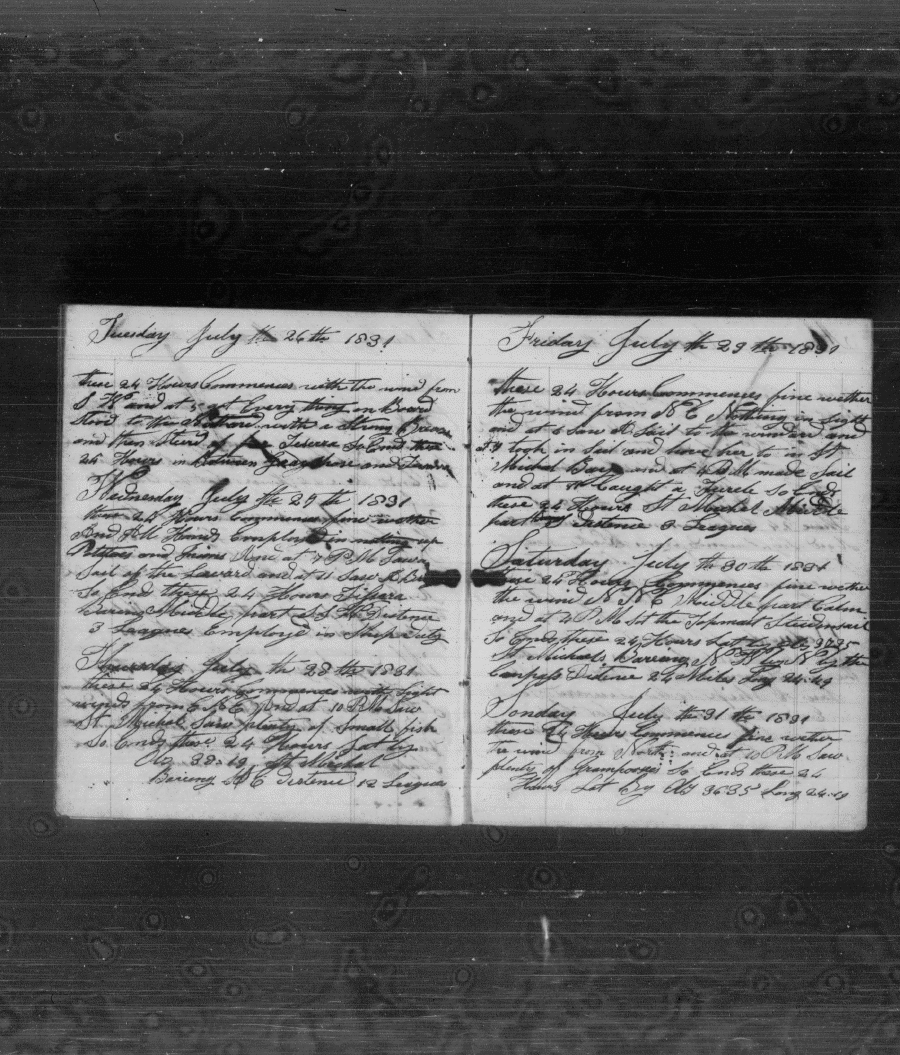 Tuesday July th 26th 1831
these 24 Hours Commences with the wind from
S W and at 5 got Every thing on Board
Stood to the with a Strong Breeze
and then Steerd of for So Ends these
24 Hours in Between and
Wednesday July th 27th 1831
these 24 Hours Commences fine wether
and all Hands Employed in up
and And at 7 P M Saw
Sail of the Laward and at 11 Saw A
So Ends these 24 Hours
Bareing Middle part S S W Distence
3 Leagues Employd in Ships duty
Thursday July th 28th 1831
these 24 Hours commences with light
winds from E N E And at 10 P M Saw
St Michel Saw plenty of Small fish
So Ends these 24 Hours Lat by
38=19 St Michel
Bareing N E distence 12 Leagues
Friday July th 29th 1831
these 24 Hours Commences fine wether
the wind from N E Nothing in Sight
and at 6 Saw A Sail to the windard and
at 9 took in Sail and have her to in St
Michel Bay and at 4 A M made Sail
and at Caught a Turtle So Ends
these 24 Hours St Michel Middle
part Distence 3 Leagues
Saturday July th 30th 1831
these 24 Hours Commences fine wether
the wind N N E Middle part Calm
and at 4 P M Set the Topmast Studensail
So Ends these 24 Hours Lat by 3735
St Michels Bareing N W by N by the
Compass Distence 24 Miles Long 24=19
Sonday July th 31th 1831
these 24 Hours Commences fine wether
the wind from North and at 10 P M Saw
plenty of Gramposses So Ends these 24
Hours Lat by 3635 Long 24=19